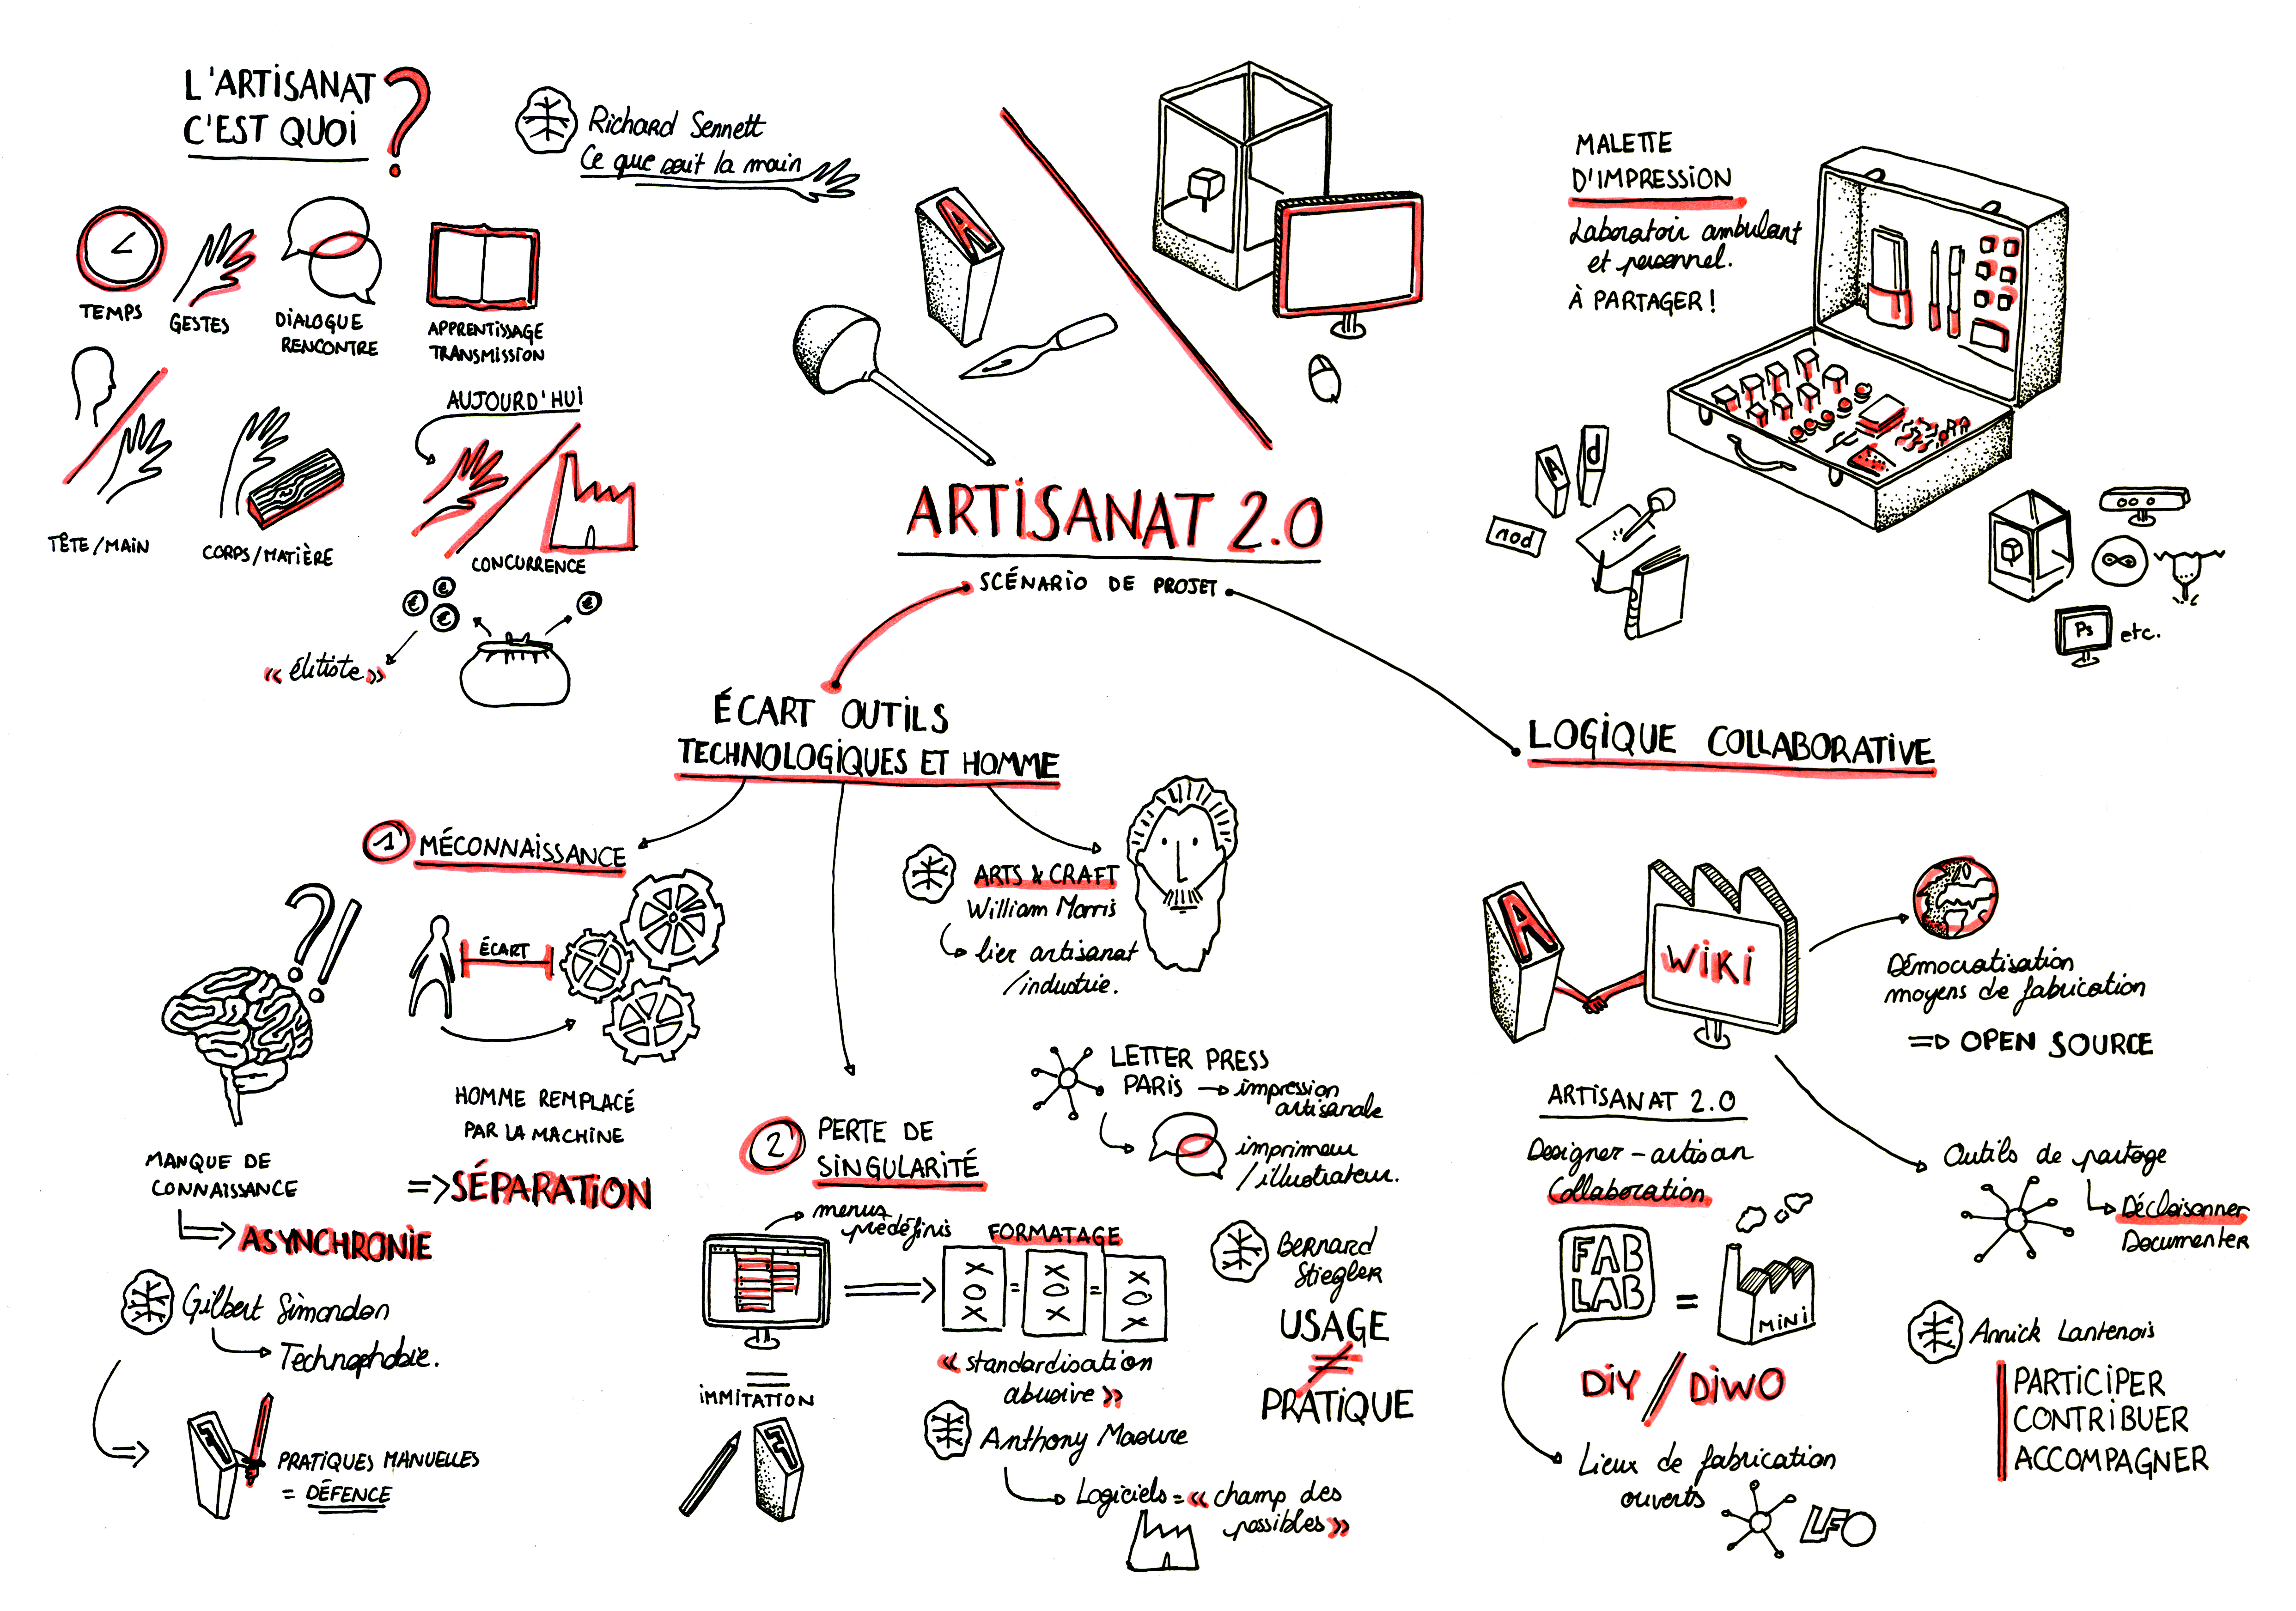 L'ARTISANAT
C'EST QUOI ?
Richard Sennett
Ce que sait la main
TEMPS
GESTES
DIALOGUE
RENCONTRE
APPRENTISSAGE
TRANSMISSION
TÊTE/MAIN
CORPS/MATIÈRE
AUJOURD'HUI
CONCURRENCE
€
€
€
€
« élitiste »
A
ARTISANAT 2.0
SCÉNARIO DE PROJET
MALETTE
D'IMPRESSION
Laboratoir ambulant
et personnel.
À PARTAGER !
A
d
nod
Ps
etc.
ÉCART OUTILS
TECHNOLOGIQUES ET HOMME
1 MÉCONNAISSANCE
?!
ÉCART
HOMME REMPLACÉ
PAR LA MACHINE
=> SÉPARATION
MANQUE DE
CONNAISSANCE
ASYNCHRONIE
Gilbert Simondon
Technophobie.
PRATIQUES MANUELLES
= DÉFENCE
ARTS & CRAFT
William Morris
lier artisanat
/industrie.
LETTER PRESS
PARIS → impression
artisanale
imprimeur
/illustrateur.
2 PERTE DE
SINGULARITÉ
menus
prédéfinis
FORMATAGE
XOX = XOX = XOX
« standardisation
abusive »
=
IMMITATION
Anthony Masure
Logiciels = « champ des
possibles »
Bernard
Stiegler
USAGE
≠
PRATIQUE
LOGIQUE COLLABORATIVE
A
WIKI
Démocratisation
moyens de fabrication
=> OPEN SOURCE
ARTISANAT 2.0
Designer - artisan
Collaboration
FAB
LAB
=
MINI
DIY / DIWO
Lieux de fabrication
ouverts
LFO
Outils de partage
Décloisonner
Documenter
Annick Lantenois
PARTICIPER
CONTRIBUER
ACCOMPAGNER